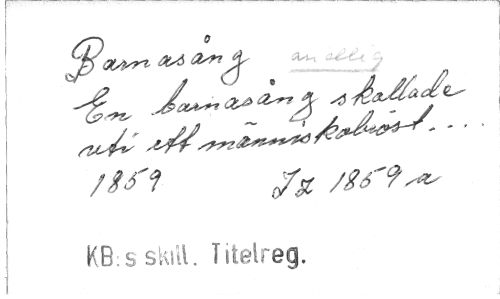 Barnasång andlig
En barnasång skallade
uti ett människobröst....
1859 Iz 1859 a
KB:s skill. Titelreg.